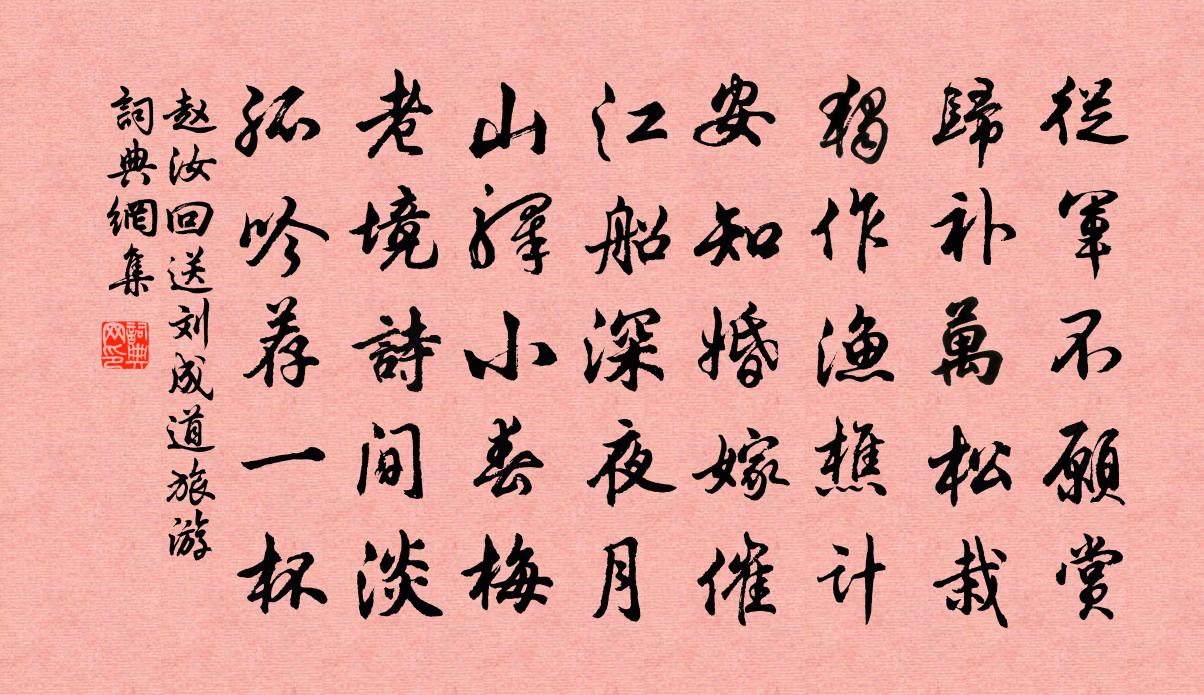 從軍不願赏
歸补萬松栽
獨作漁樵计
安知婚嫁催
江船深夜月
山驛小春梅
老境詩间淡
孤吟荐一杯
赵汝回送刘成道旅游
詞典網集
詞典网印